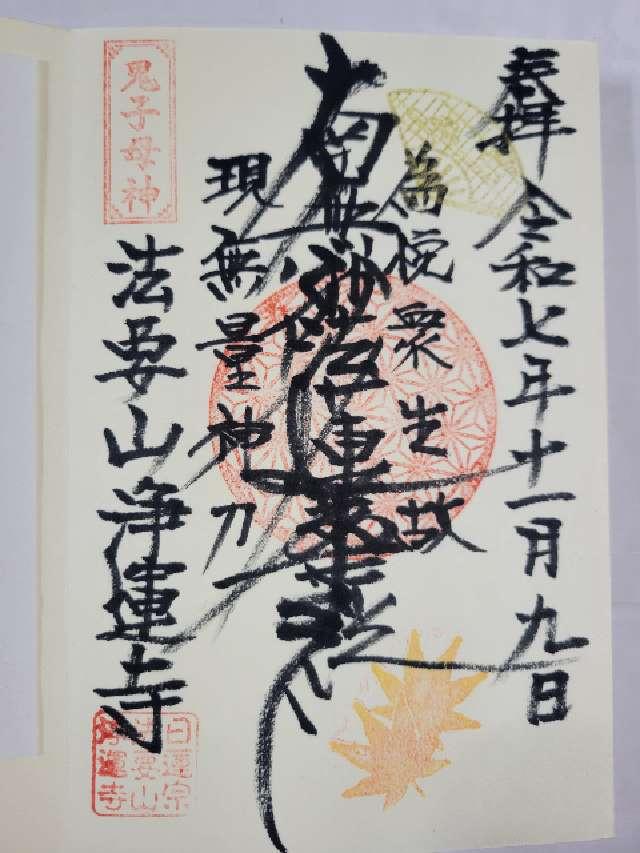 奉拝
令和七年十一月九日
為悦衆生故
南無妙法蓮華経
現無量神力
鬼子母神
法要山浄蓮寺
日蓮宗
法要山
浄蓮寺